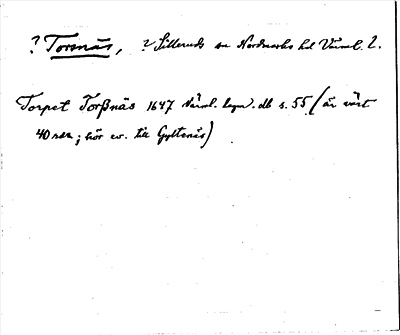 ? Torsnäs, ? Silleruds sn Nordmarks hd Värml. l.
Torpet Torßnäs 1647 Värml. lagm. db s. 55 (är värt
40 rdr; hör ev. till Gyltenäs)